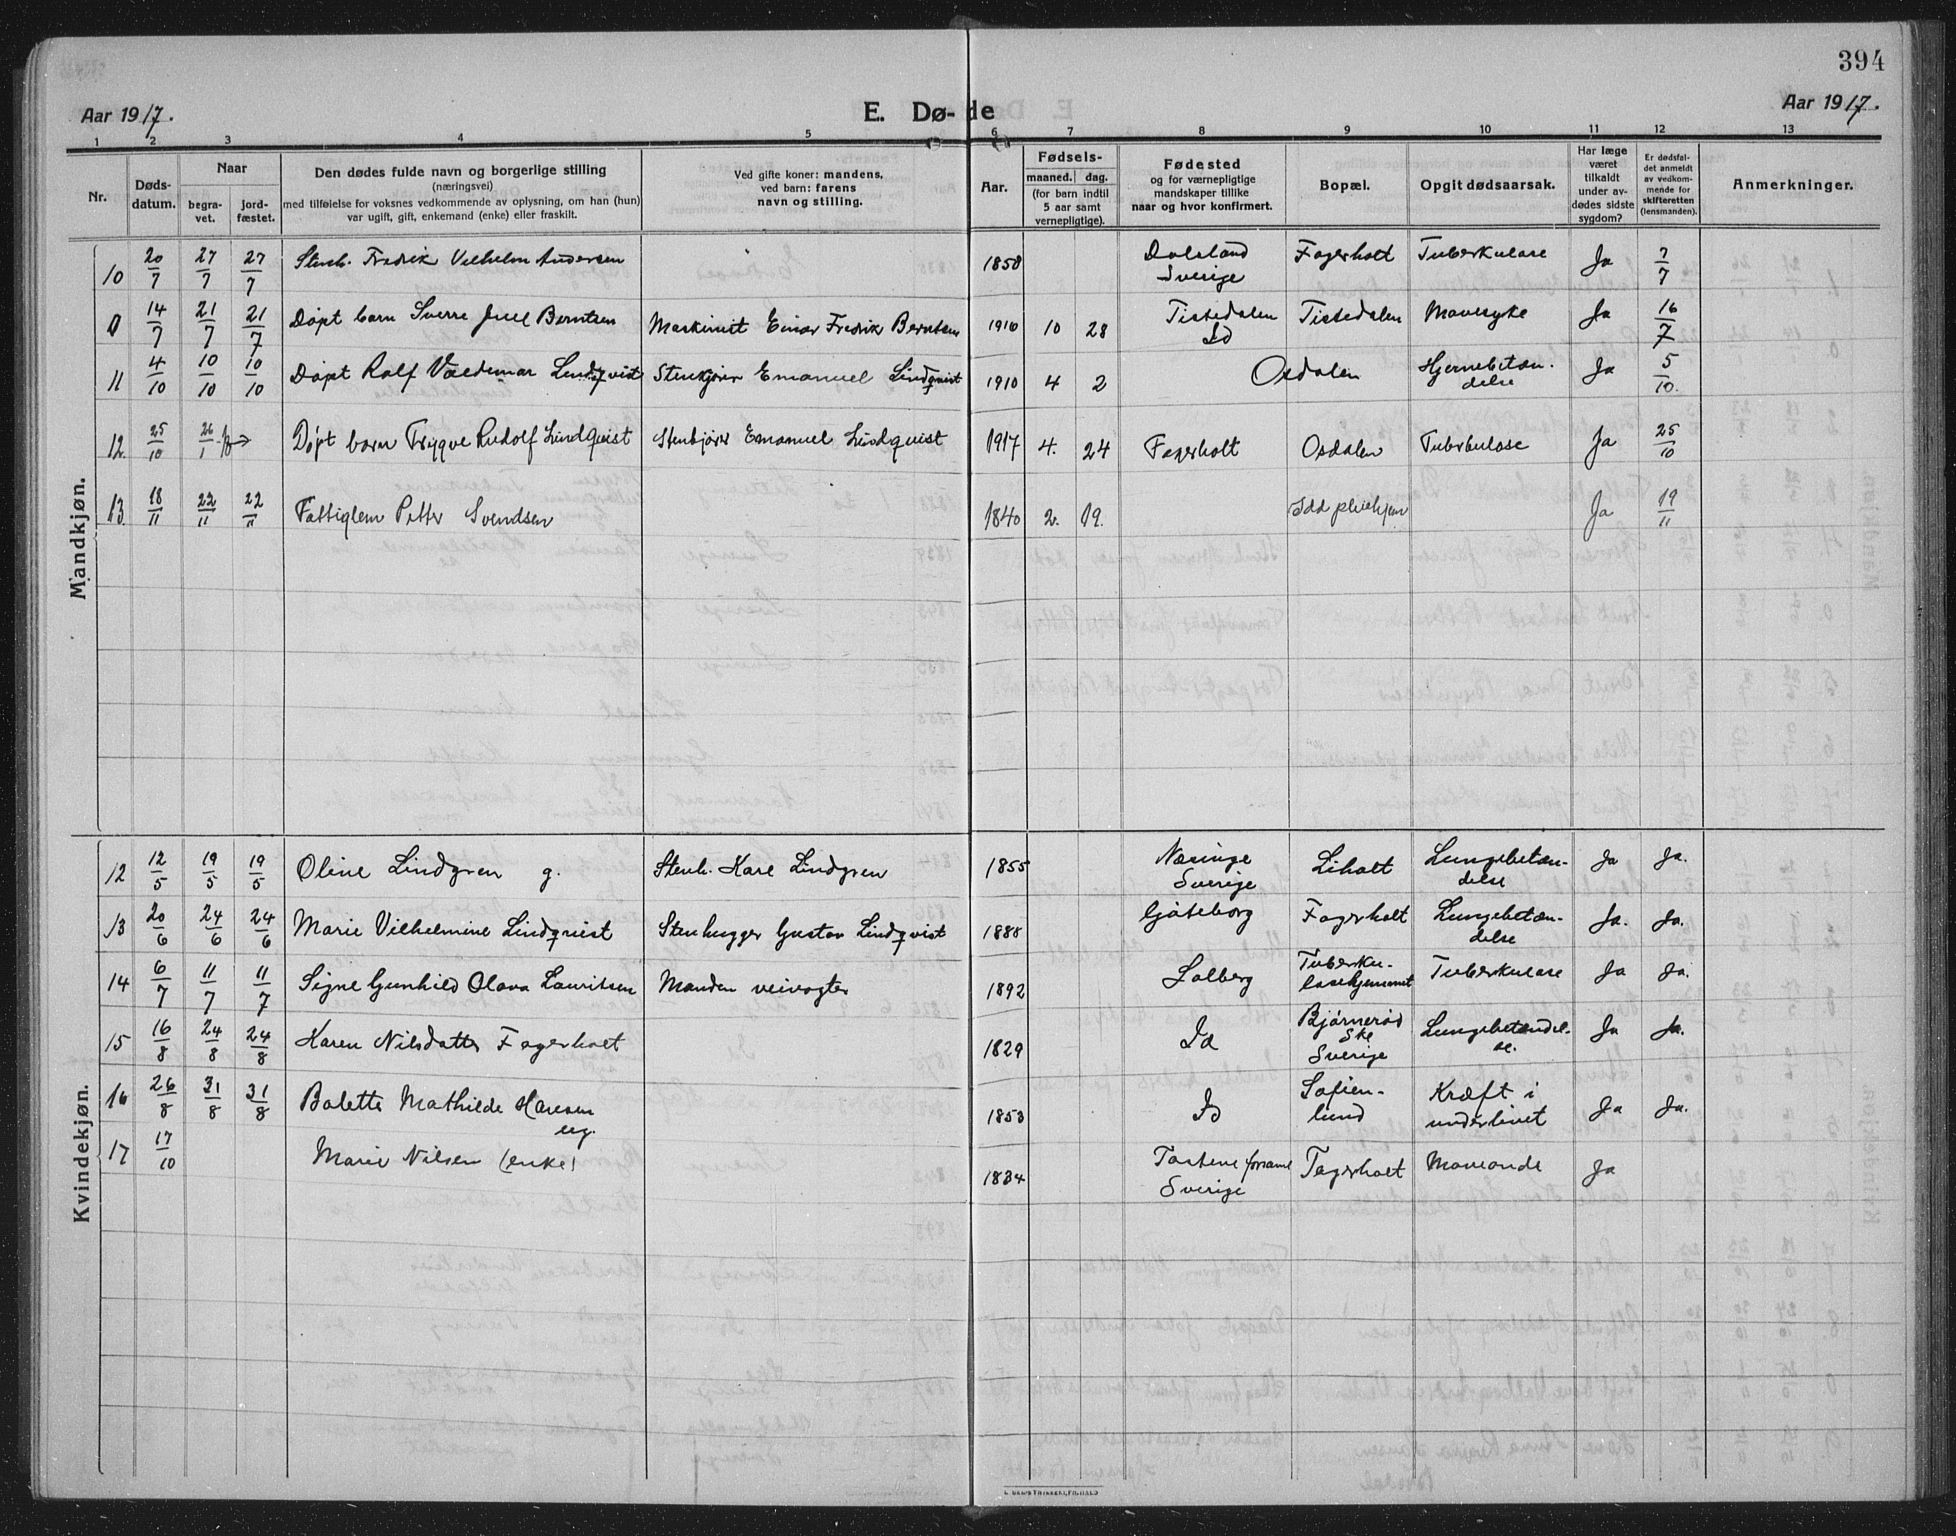 394
Aar 1917.
E. Dø- de
Aar 1917.
1 2 3 4 5 6 7 8 9 10 11 12 13
Nr.
Døds-
datum.
Naar
begra-
vet.
jord-
fæstet.
Den dødes fulde navn og borgerlige stilling
(næringsvei)
med tilføielse for voksnes vedkommende av oplysning, om han (hun)
var ugift, gift, enkemand (enke) eller fraskilt.
Ved gifte koner: mandens,
ved barn: farens
navn og stilling.
Aar.
Fødsels-
maaned. dag.
(for barn indtil
5 aar samt
vernepligtige).
Fødested
og for værnepligtige
mandskaper tillike
naar og hvor konfirmert.
Bopæl.
Opgit dødsaarsak.
Har læge
været
tilkaldt
under av-
dødes sidste
sygdom?
Er dødsfal-
det anmeldt
av vedkom-
mende for
skifteretten
(lensmanden).
Anmerkninger.
Mandkjøn.
10 20/7 27/7 27/7 Stenh. Fredrik Vilhelm Andersen 1858 Dalsland Fagerholt Tuberkulose Ja 7/7
Sverige
14/7 21/7 21/7 Døpt barn Sverre Juel Berntsen Maskinist Einar Fredrik Berntsen 1916 10 28 Tistedalen Tistedalen Mavesyke Ja 16/7
Id
11 4/10 10/10 10/10 Døpt Rolf Valdemar Lindqvist Stenkjører Emanuel Lindqvist 1910 4 2 Osdalen Hjernebetæn- Ja 5/10.
delse
12. 25/10 26/1 Døpt barn Trygve Rudolf Lindquist Stenkjører Emanuel Lindquist 1917 4. 24 Fagerholt Osdalen Tuberkulose Ja 25/10
13 18/11 22/11 22/11 Fattiglem Petter Svendsen 1840 2. 19. Idd pleiehjem Ja 19/11
Kvindekjøn.
12 12/5 19/5 19/5 Oline Lindgren g. Stenh. Karl Lindgren 1855 Næsinge Liholt Lungebetæn- Ja Ja.
Sverige delse
13 20/6 24/6 24/6 Marie Vilhelmine Lindqvist Stenhugger Gustav Lindqvist 1888 Gøteborg Fagerholt Lungebetæn- Ja. Ja.
delse
14 6/7 11/7 11/7 Signe Gunhild Olava Lauritsen Manden veivogter 1892 Solberg Tuberku- Tuberkulose Ja Ja.
losehjemmet
15 16/8 24/8 24/8 Karen Nilsdatter Fagerholt 1829 Id Bjørnerød Lungebetændel- Ja Ja.
Ske se.
Sverige
16 26/8 31/8 31/8 Bolette Mathilde Hansen 1853 Id Sofien- Kræft i Ja Ja.
ug. lund underlivet
17 17/10 Marie Nilsen (enke) 1834 Fagerholt Maveonde Ja
Sverige